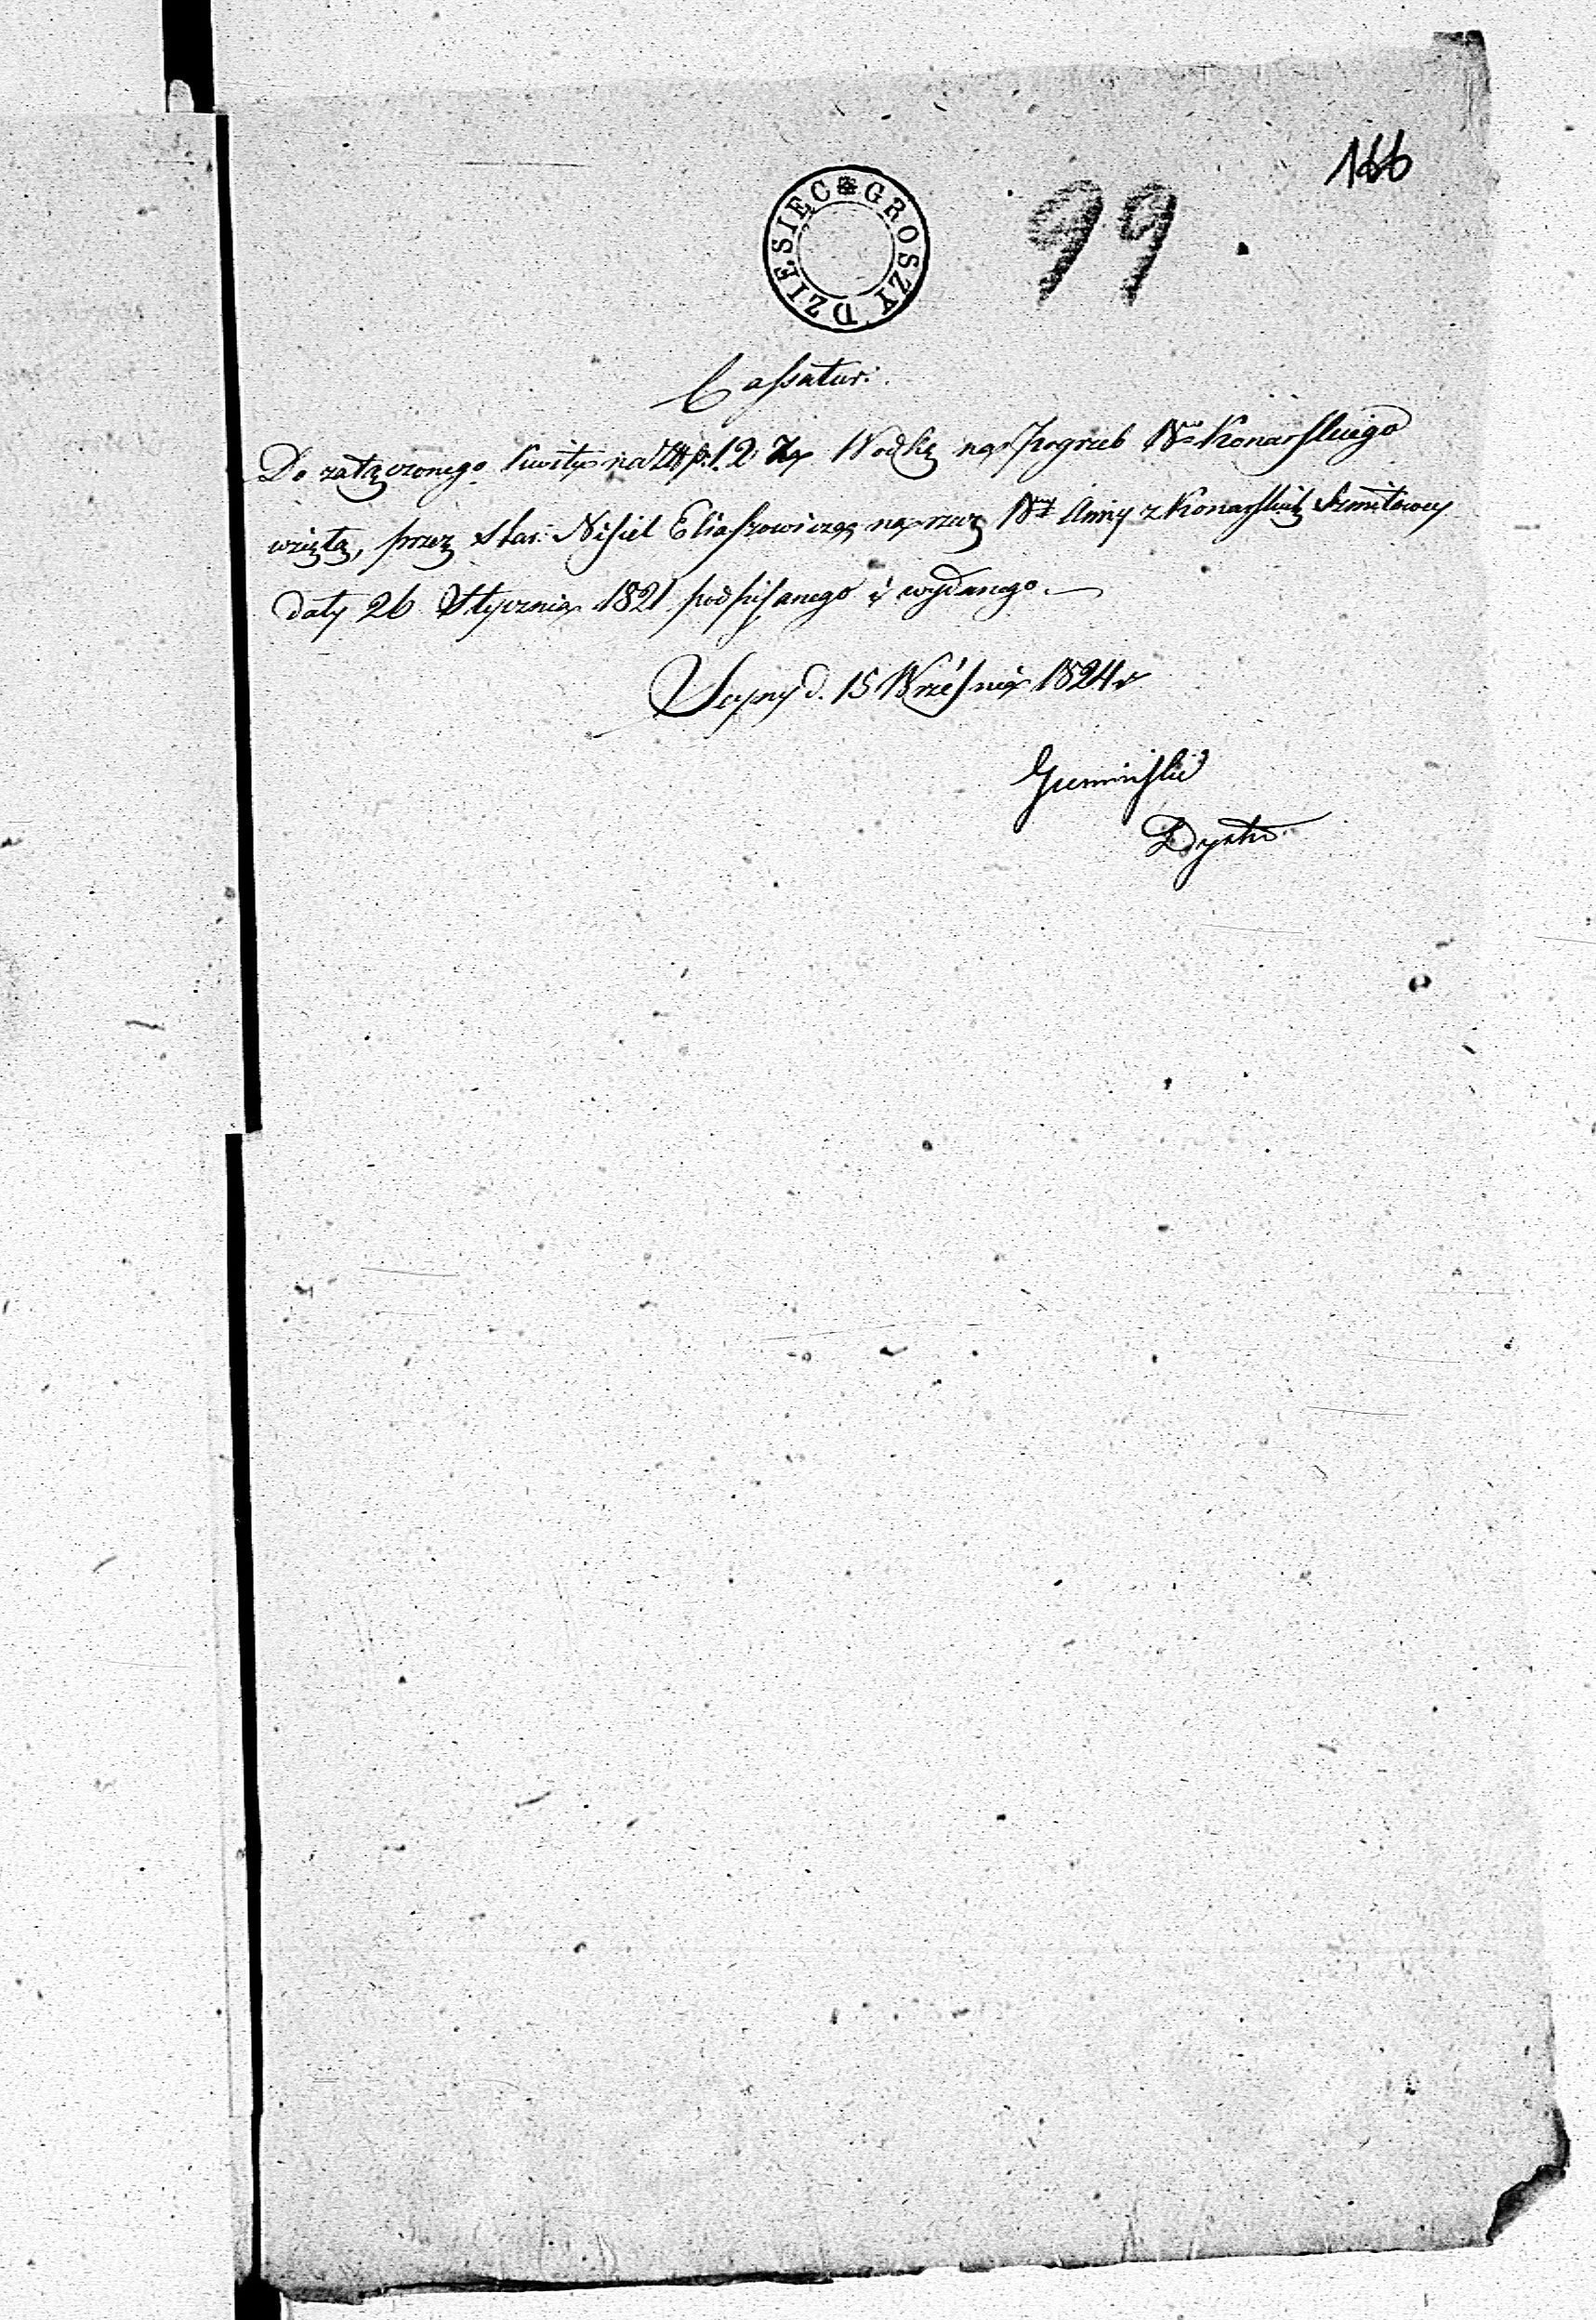 166
99
DZIESIĘC GROSZY
Cassatur.
Do załączonego kwitu na Złp. 12 za Wodkę na Pogrzeb Wgo Konarskiego
wziętą, przez Star: Nisiel Eliaszowicza na rzecz Wnej Anny z Konarskich Szmitowey
daty 26 Stycznia 1821 podpisanego i wydanego.
d. 15 Wrzésnia 1824 r
Gumiński